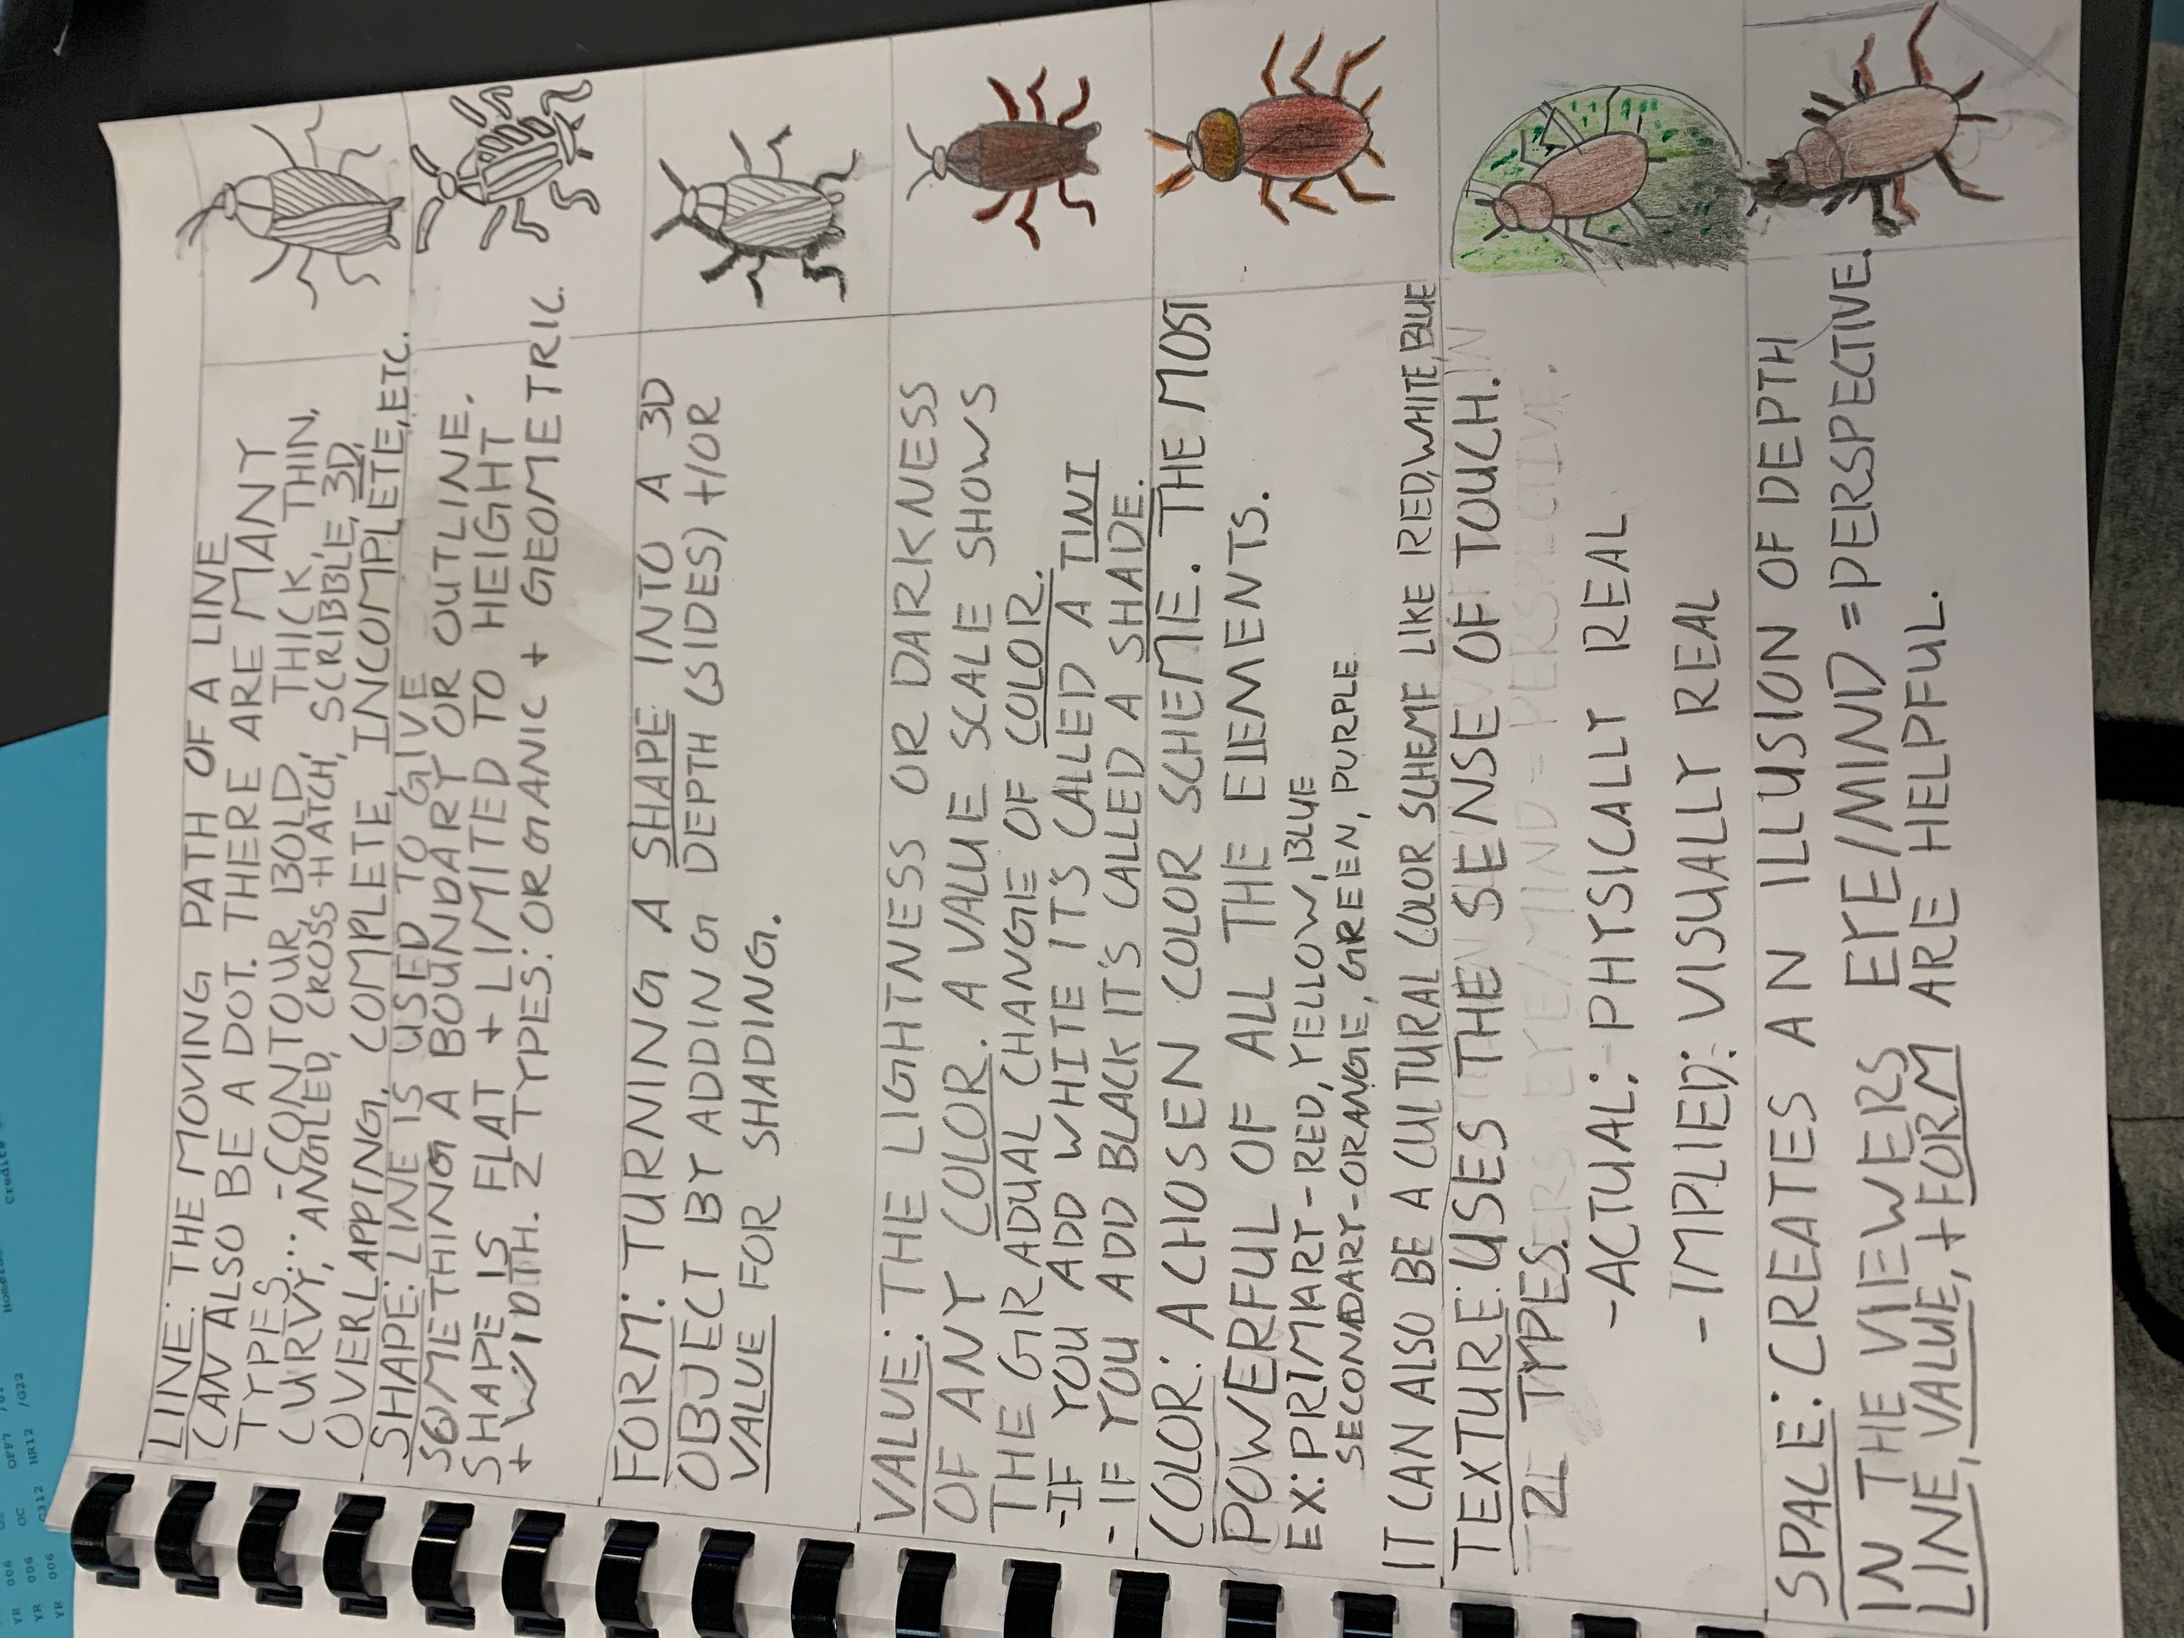 LINE: THE MOVING PATH OF A LINE
CAN ALSO BE A DOT. THERE ARE MANY
TYPES... -CONTOUR, BOLD, THICK, THIN,
CURVY, ANGLED, CROSS-HATCH, SCRIBBLE, 3D,
OVERLAPPING, COMPLETE, INCOMPLETE, ETC.
SHAPE: LINE IS USED TO GIVE
SOMETHING A BOUNDARY OR OUTLINE.
SHAPE IS FLAT + LIMITED TO HEIGHT
+ WIDTH. 2 TYPES: ORGANIC + GEOMETRIC.
FORM: TURNING A SHAPE INTO A 3D
OBJECT BY ADDING DEPTH (SIDES) +/OR
VALUE FOR SHADING.
VALUE: THE LIGHTNESS OR DARKNESS
OF ANY COLOR. A VALUE SCALE SHOWS
THE GRADUAL CHANGE OF COLOR.
-IF YOU ADD WHITE IT'S CALLED A TINT
-IF YOU ADD BLACK IT'S CALLED A SHADE.
COLOR: A CHOSEN COLOR SCHEME. THE MOST
POWERFUL OF ALL THE ELEMENTS.
EX: PRIMARY-RED, YELLOW, BLUE
SECONDARY-ORANGE, GREEN, PURPLE
IT CAN ALSO BE A CULTURAL COLOR SCHEME LIKE RED, WHITE, BLUE
TEXTURE: USES THE SENSE OF TOUCH.
2 TYPES.
-ACTUAL: PHYSICALLY REAL
-IMPLIED: VISUALLY REAL
SPACE: CREATES AN ILLUSION OF DEPTH
IN THE VIEWERS EYE/MIND = PERSPECTIVE.
LINE, VALUE, + FORM ARE HELPFUL.
OFF7
YR 006 OC HR12 /G22
YR 006 C312
YR 006